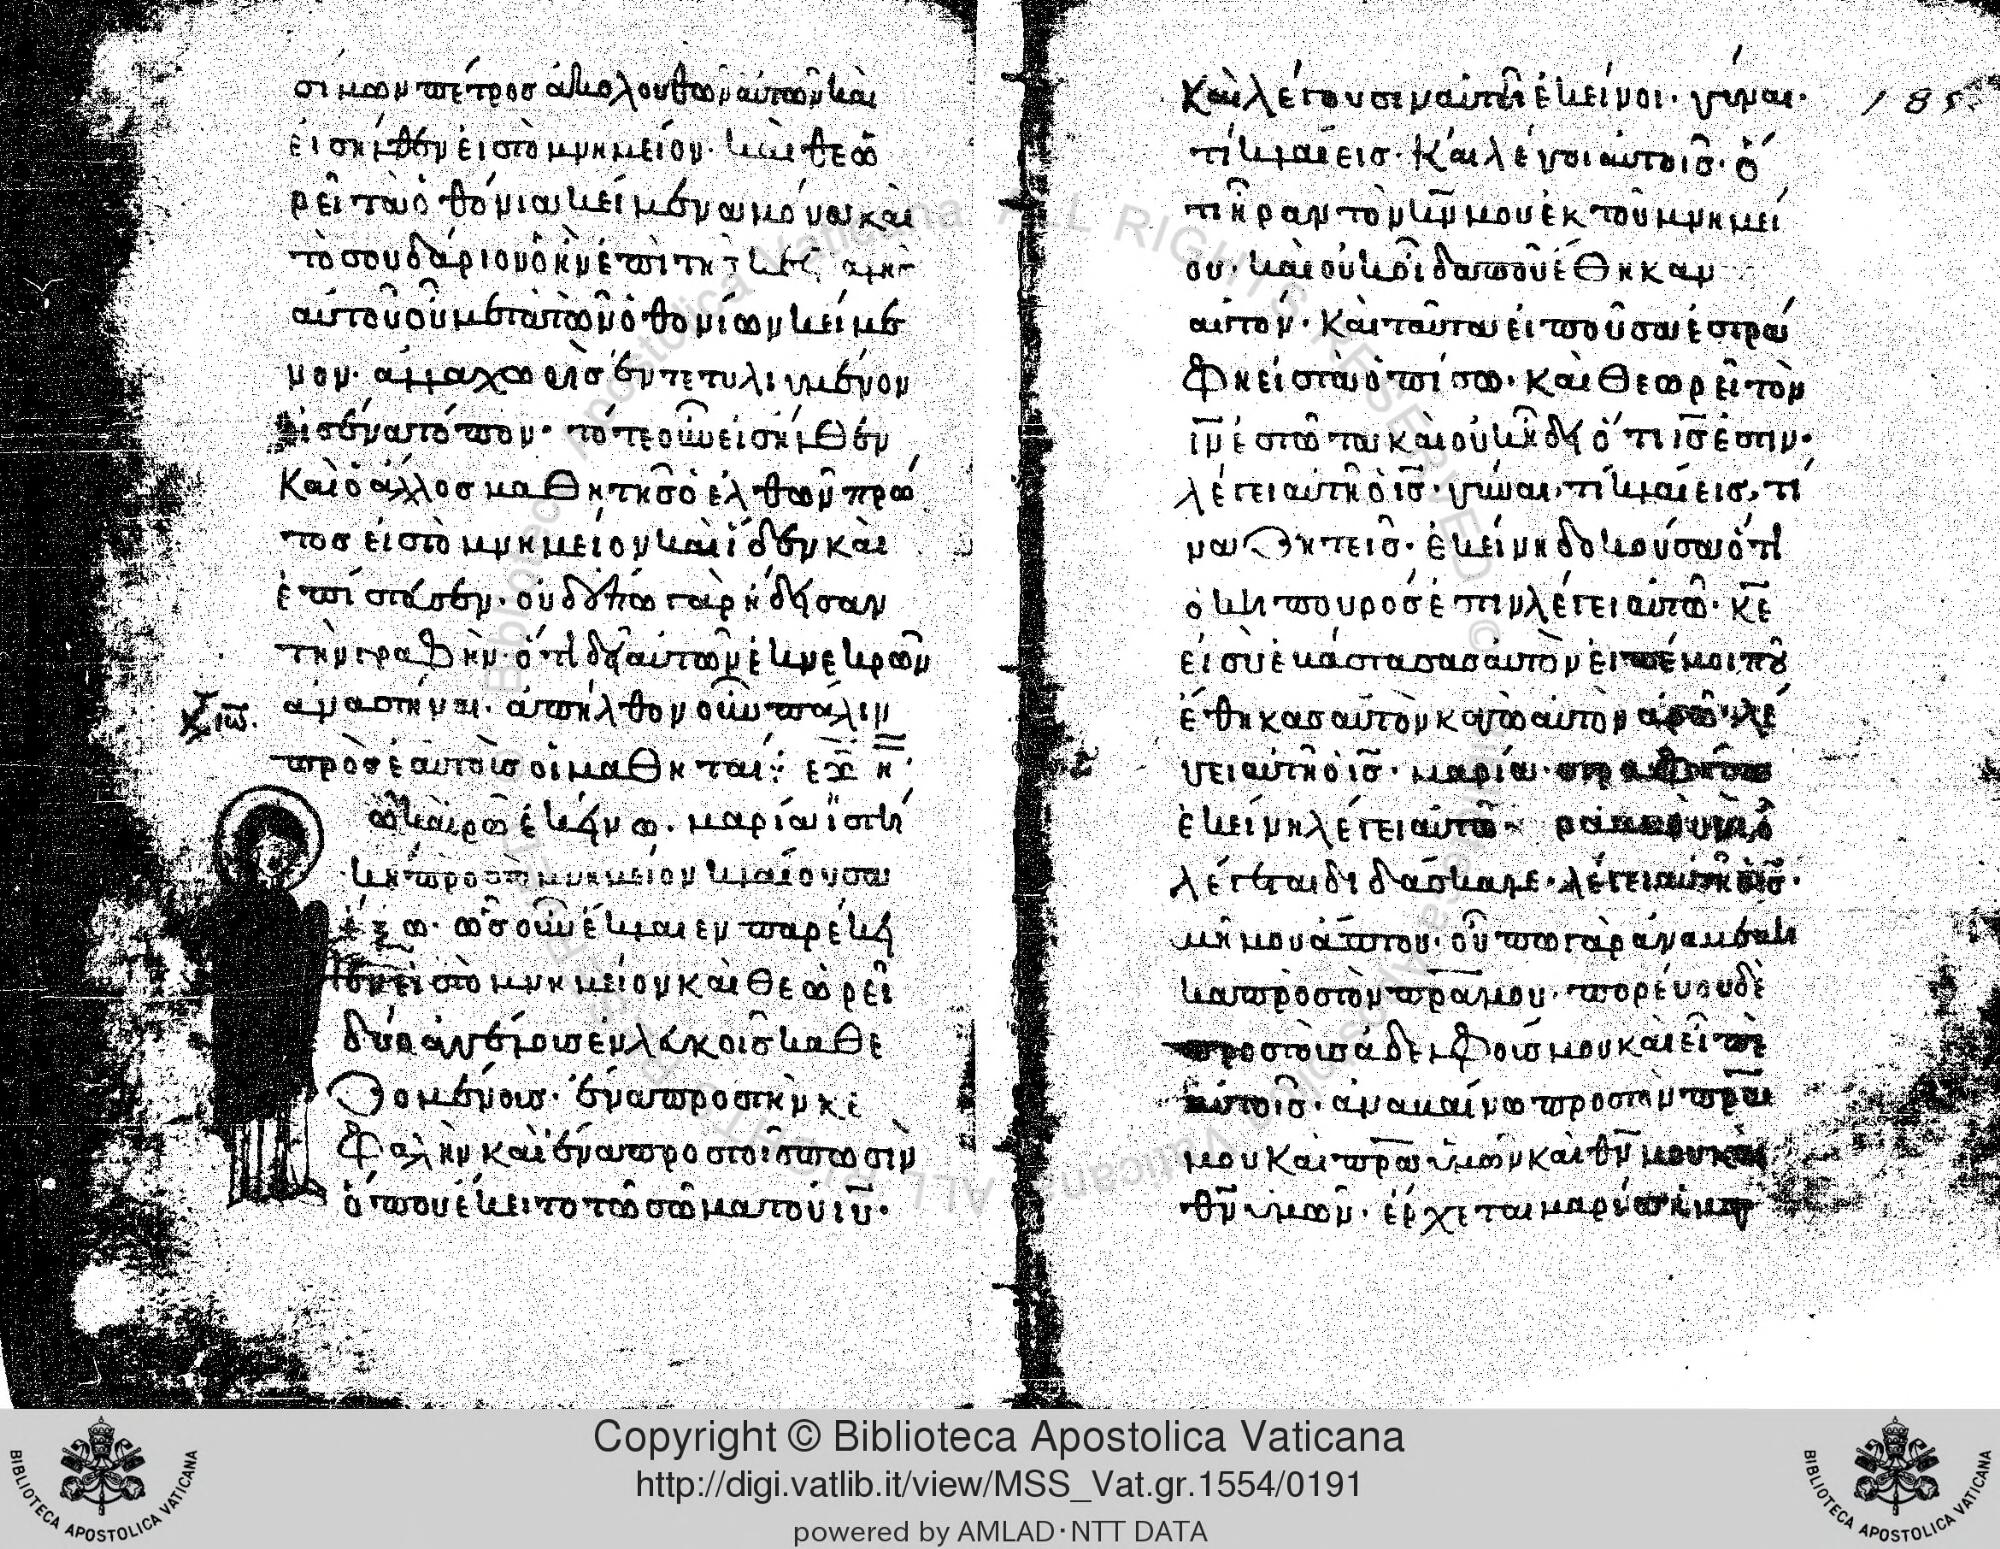 σίμων πέτρος ἀκολουθῶν αὐτῶ καὶ
εἰσῆλθεν εἰς τὸ μνημεῖον· καὶ θεω
ρεῖ τὰ ὀθόνια κείμενα μόνα καὶ
τὸ σουδάριον ὃ ἦν ἐπὶ τῆς
αὐτοῦ οὐ μετὰ τῶν ὀθονίων κείμε
νον· ἀλλὰ χωρὶς ἐντετυλιγμένον
εἰς ἕνα τόπον· τότε οὖν εἰσῆλθεν
Καὶ ὁ ἄλλος μαθητὴς ὁ ἐλθὼν πρῶ
τος εἰς τὸ μνημεῖον καὶ ἴδεν καὶ
ἐπίστευσεν· οὐδέπω γὰρ ἤδεισαν
τὴν γραφήν· ὅτι δεῖ αὐτὸν ἐκ νεκρῶν
ἀναστῆναι· ἀπῆλθον οὖν πάλιν
πρὸς ἑαυτοὺς οἱ μαθηταί:
ιω.
Τῶ καιρῶ ἐκείνω· μαρία ἱστή
κη πρὸς τὸ μνημεῖον κλαίουσα
ἔξω· ὡς οὖν ἔκλαιεν παρέκυ
ψεν εἰς τὸ μνημεῖον καὶ θεωρεῖ
δύο ἀγγέλους ἐν λευκοῖς καθε
ζομένους· ἕνα πρὸς τὴν κε
φαλὴν καὶ ἕνα πρὸς τοῖς ποσὶν
ὅπου ἔκειτο τὸ σῶμα τοῦ ιυ·
185.
Καὶ λέγουσιν αὐτῆ ἐκεῖνοι· γύναι·
τί κλαίεις· Καὶ λέγει αὐτοῖς· ὅ
τι ἦραν τὸν κν μου ἐκ τοῦ μνημεί
ου· καὶ οὐκ οἶδα ποῦ ἔθηκαν
αὐτόν· Καὶ ταῦτα εἰποῦσα ἐστρά
φη εἰς τὰ ὀπίσω· Καὶ θεωρεῖ τὸν
ιν ἑστῶτα καὶ οὐκ ἤδει ὅτι ις ἐστιν·
λέγει αὐτῆ ὁ ις· γύναι, τί κλαίεις, τί
να ζητεῖς· ἐκείνη δοκοῦσα ὅτι
ὁ κηπουρός ἐστιν λέγει αὐτῶ· κε
εἰ σὺ ἐβάστασας αὐτὸν εἰπέ μοι ποῦ
ἔθηκας αὐτὸν κἀγὼ αὐτὸν ἀρῶ· λέ
γει αὐτῆ ὁ ις· μαρία· στραφεῖσα
ἐκείνη λέγει αὐτῶ· ραββουνὶ ὃ
λέγεται διδάσκαλε· λέγει αὐτῆ ὁ ις·
μή μου ἅπτου· οὔπω γὰρ ἀναβέβη
κα πρὸς τὸν πρα μου· πορεύου δὲ
πρὸς τοὺς ἀδελφούς μου καὶ εἰπὲ
αὐτοῖς· ἀναβαίνω πρὸς τὸν πρα
μου Καὶ πρα ὑμῶν καὶ θν μου καὶ
θν ὑμῶν· ἔρχεται μαρία
Copyright © Biblioteca Apostolica Vaticana
http://digi.vatlib.it/view/MSS_Vat.gr.1554/0191
powered by AMLAD·NTT DATA
BIBLIOTECA APOSTOLICA VATICANA
BIBLIOTECA APOSTOLICA VATICANA